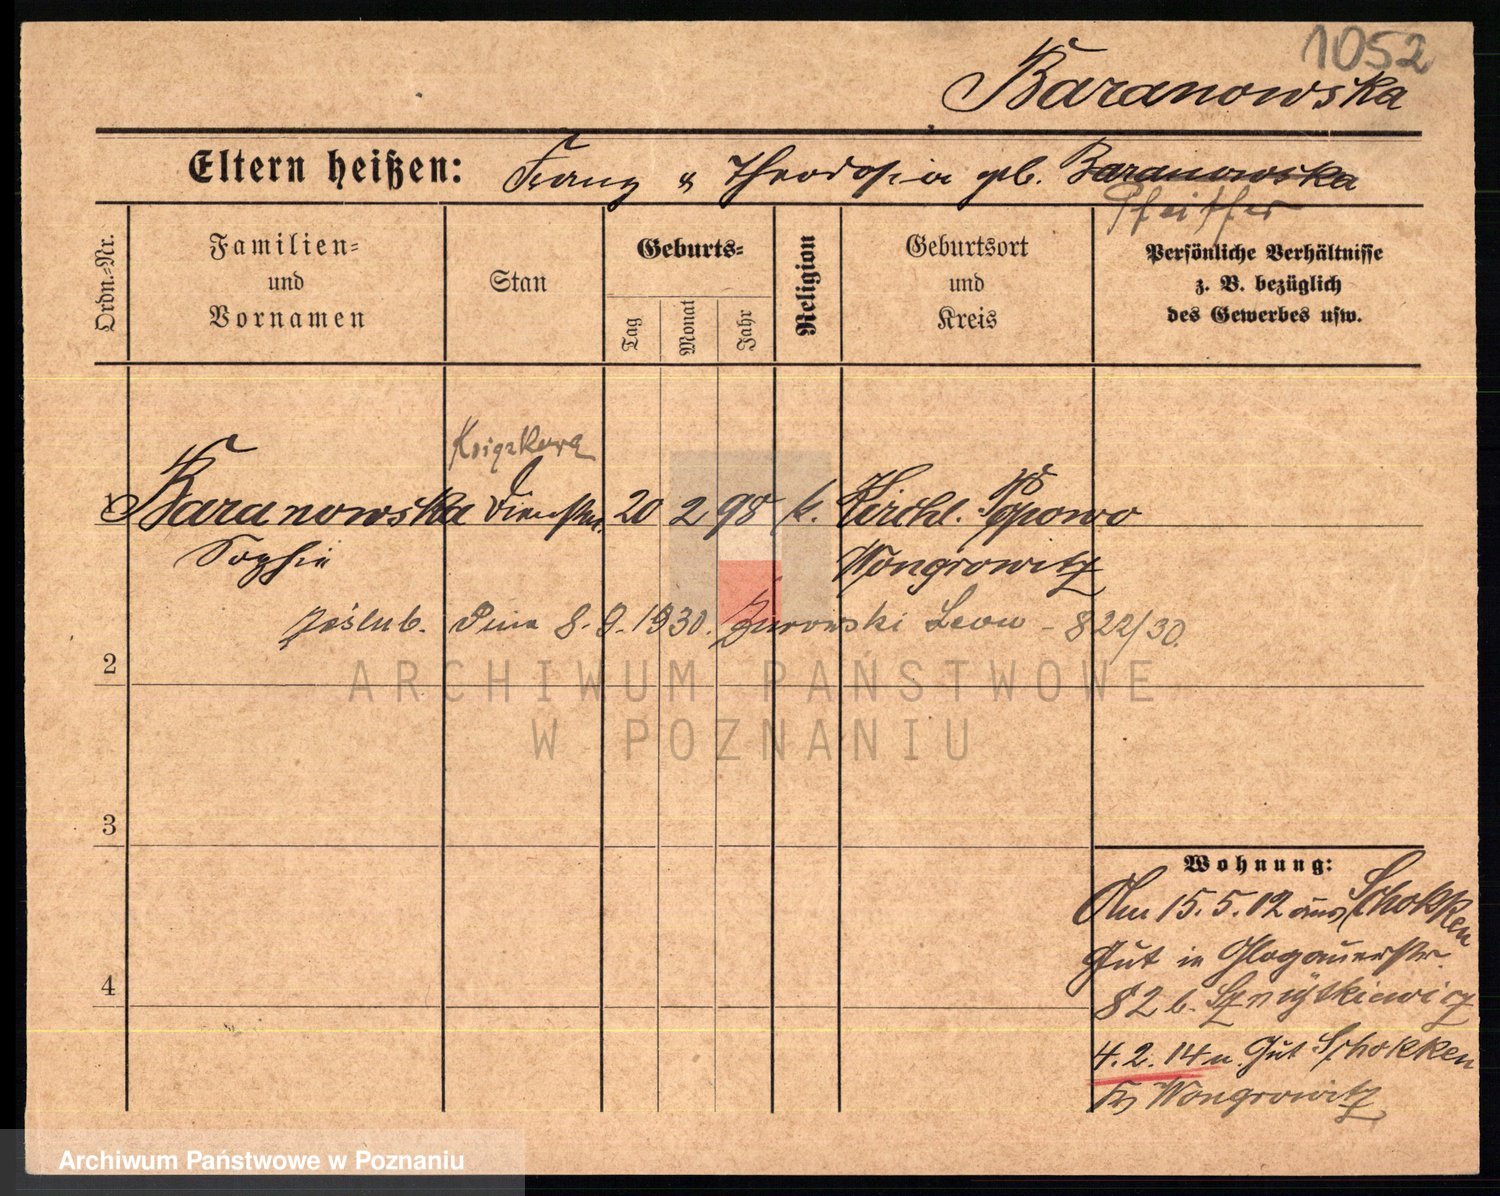 1052
Baranowska
Eltern heißen: Franz u Theodosia geb. Baranowska
Pfeiffer
Ordn.=Nr.
Familien=
und
Vornamen
Stan
Geburts=
Tag
Monat
Jahr
Religion
Geburtsort
und
Kreis
Persönliche Verhältnisse
z. B. bezüglich
des Gewerbes usw.
1 Baranowska Dienstm. 20 2 98 k. Kirchl. Popowo
Sophie
Wongrowitz
zaślub. dnia 8.9.1930. Żurowski Leon - 822/30.
2
ARCHIWUM PAŃSTWOWE
W POZNANIU
3
Wohnung:
Am 15.5.12 aus Schokken
Gut in Glogauerstr.
82 b.
4
4.2.14 n. Gut Schokken
Kr Wongrowitz
Archiwum Państwowe w Poznaniu